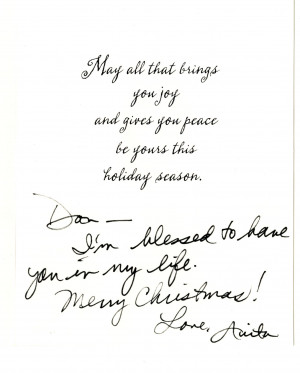 May all that brings
you joy
and gives you peace
be yours this
holiday season.
Dan —
I'm blessed to have
you in my life.
Merry Christmas!
Love, Anita